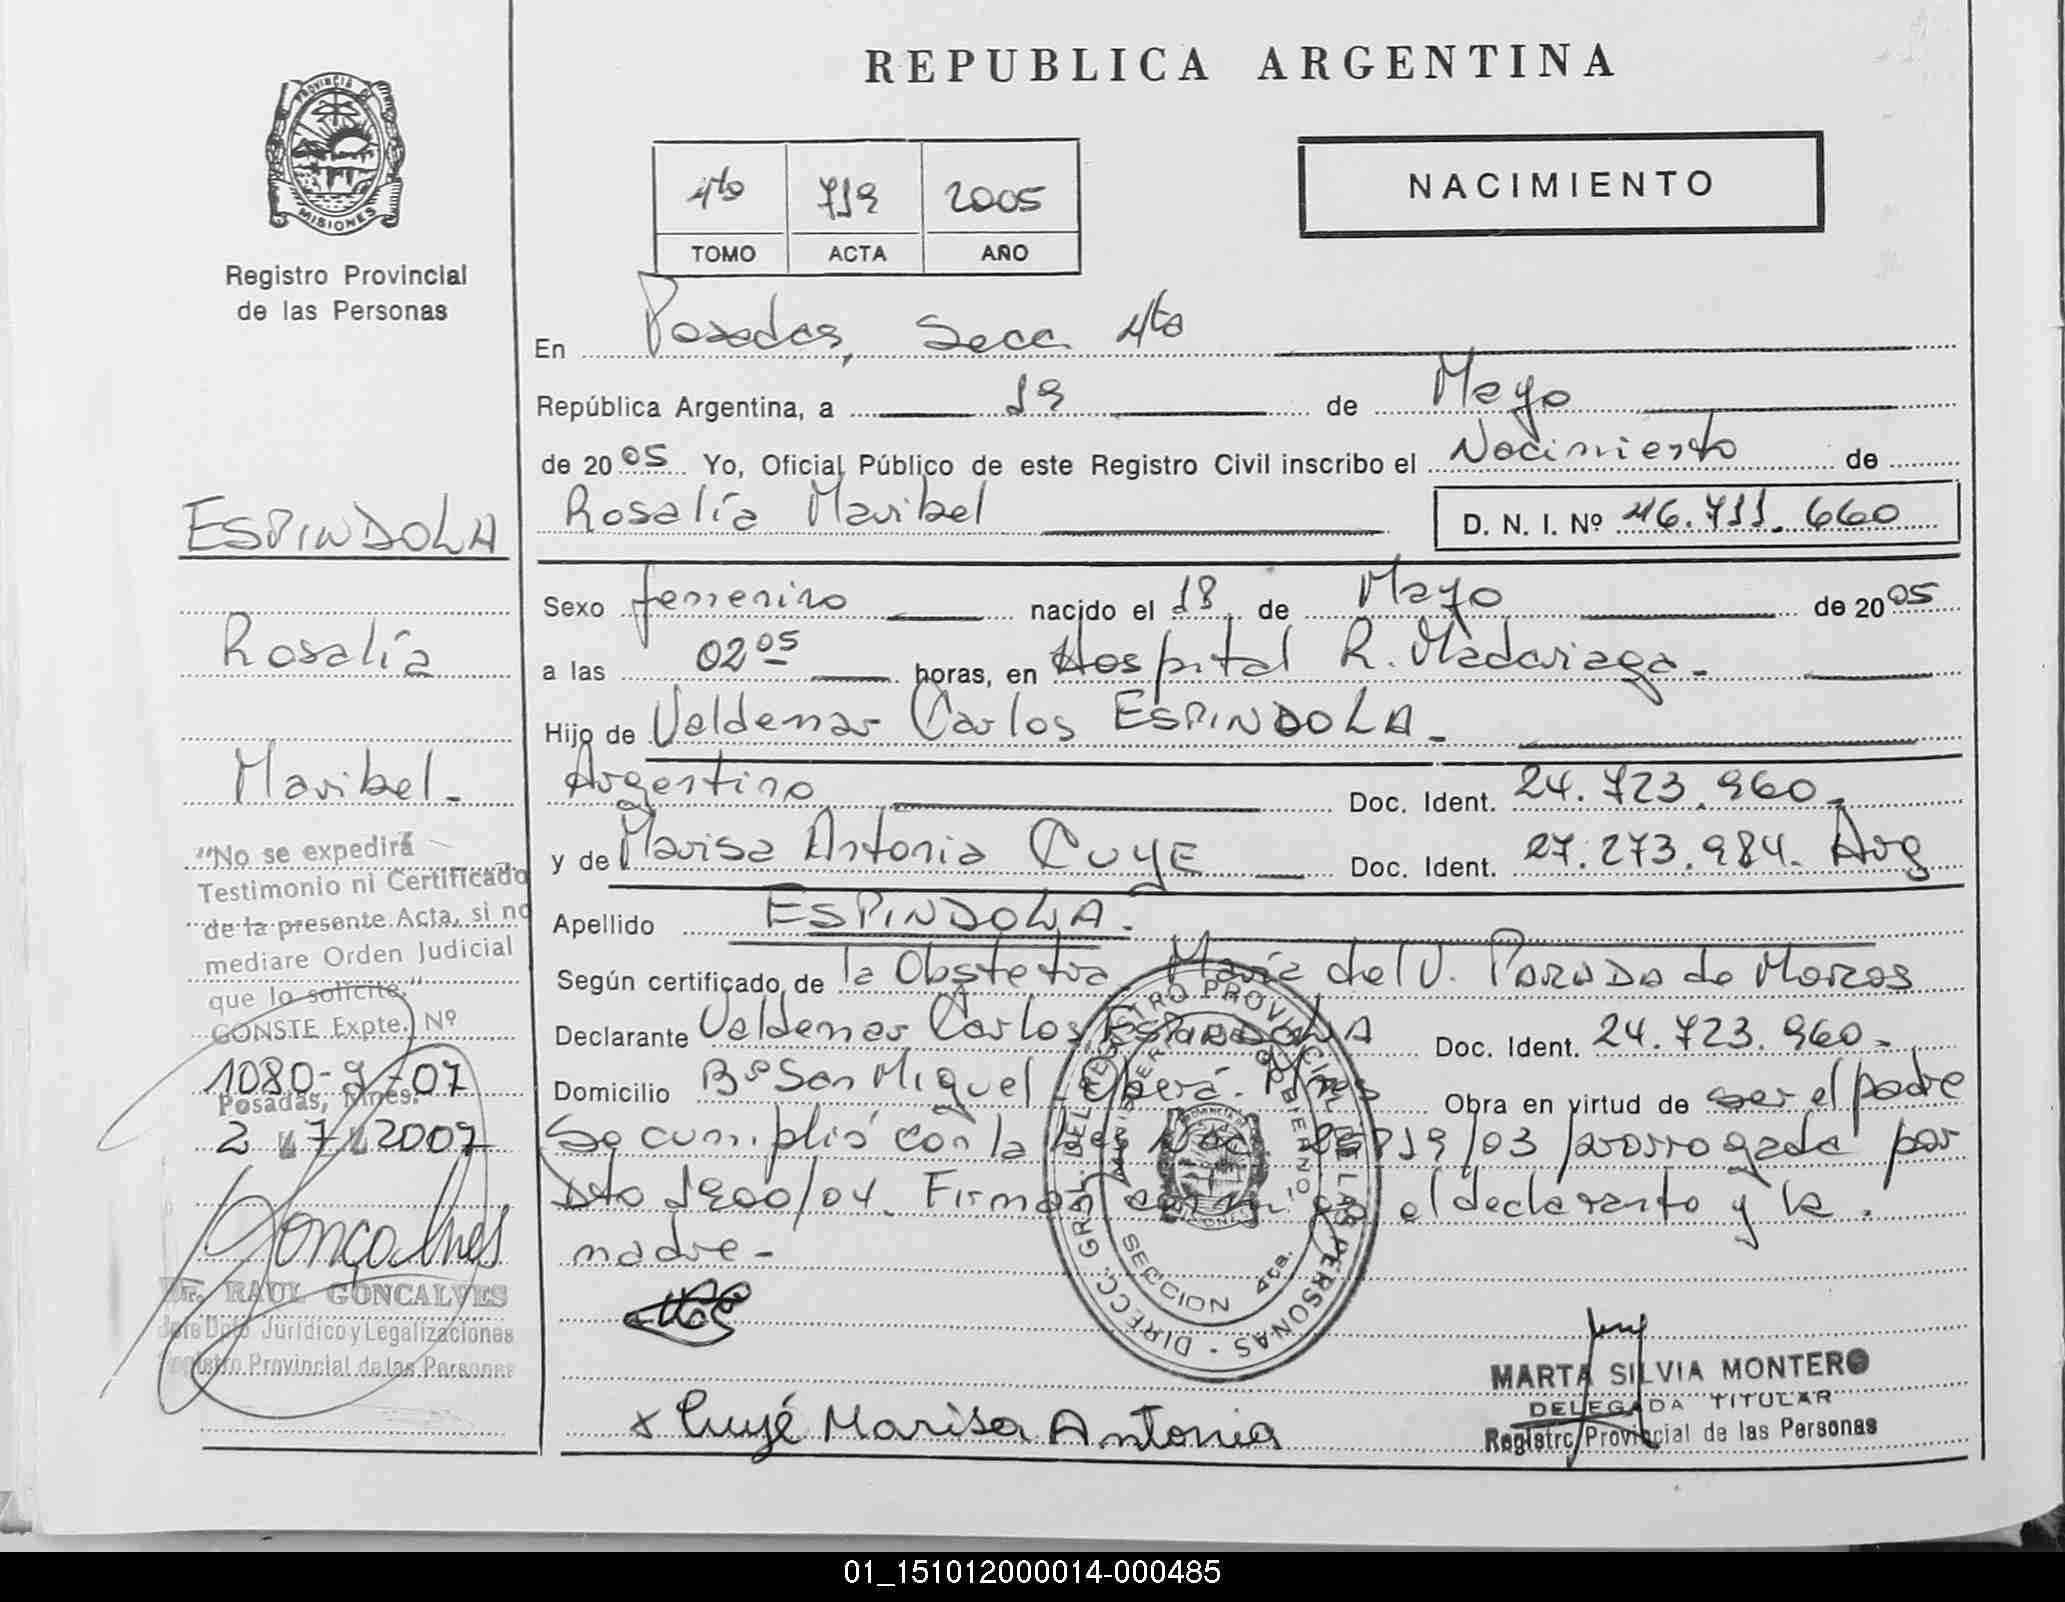 REPUBLICA ARGENTINA
PROVINCIA DE
MISIONES
Registro Provincial
de las Personas
4to 719 2005
TOMO ACTA AÑO
NACIMIENTO
En Posadas, Secc. 4to
República Argentina, a 19 de Mayo
de 2005 Yo, Oficial Público de este Registro Civil inscribo el Nacimiento de
Rosalía Maribel D. N. I. Nº 46.711.660
Sexo femenino nacido el 18 de Mayo de 2005
a las 02 05 horas, en Hospital R. Madariaga.
Hijo de Valdemar Carlos ESPINDOLA.
Argentino Doc. Ident. 24.723.960.
y de Marisa Antonia CUYE Doc. Ident. 27.273.984. Arg
Apellido ESPINDOLA.
Según certificado de la Obstetra María del V. PARODO de Morzos
Declarante Valdemar Carlos ESPINDOLA Doc. Ident. 24.723.960.
Domicilio Bº San Miguel Oberá. Mnes Obra en virtud de ser el padre
Se cumplió con la Ley Nac. 25819/03 prorrogada por
Dto 1900/04. Firman conmigo el declarante y la
madre-
x Cuyé Marisa Antonia
MARTA SILVIA MONTERO
DELEGADA TITULAR
Registro Provincial de las Personas
DIRECC. GRAL. DEL REGISTRO PROVINCIAL DE LAS PERSONAS
MINISTERIO DE GOBIERNO
SECCION 4ta.
ESPINDOLA
Rosalía
Maribel-
"No se expedirá
Testimonio ni Certificado
de la presente Acta, si no
mediare Orden Judicial
que lo solicite."
CONSTE Expte. Nº
1080-9-07
Posadas, Mnes.
2 7 2007
Gonçalves
Dr. RAUL GONCALVES
Jefe Dpto Jurídico y Legalizaciones
Registro Provincial de las Personas
01_151012000014-000485